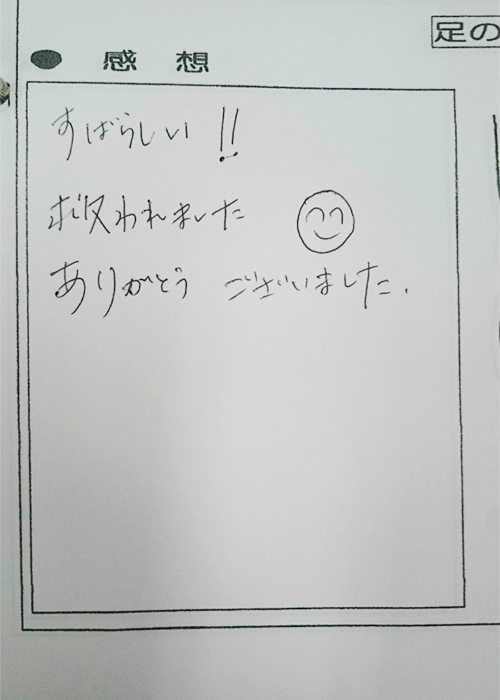 足の
● 感 想
すばらしい!!
救われました
ありがとう ございました.